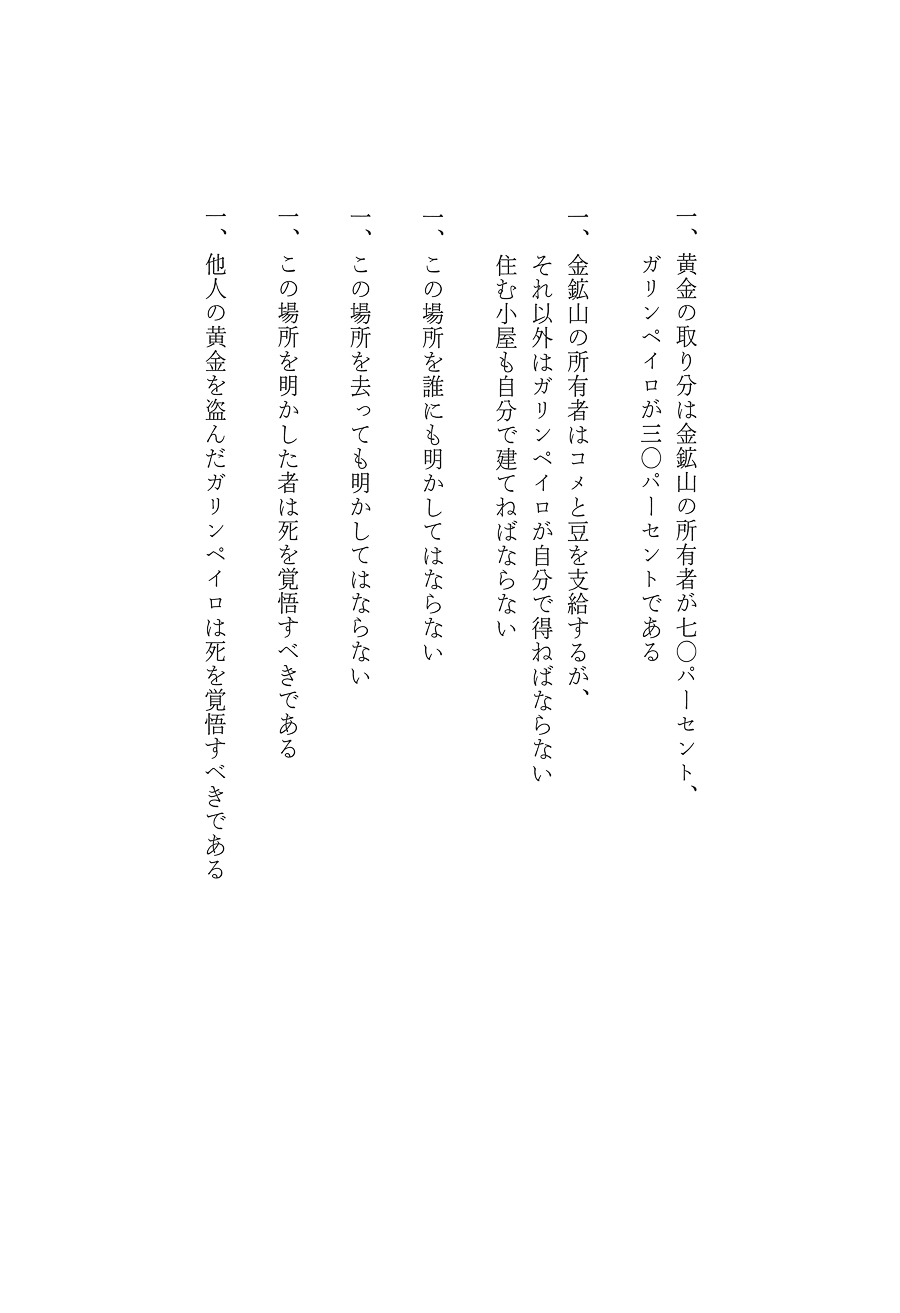 一、黄金の取り分は金鉱山の所有者が七〇パーセント、
ガリンペイロが三〇パーセントである
一、金鉱山の所有者はコメと豆を支給するが、
それ以外はガリンペイロが自分で得ねばならない
住む小屋も自分で建てねばならない
一、この場所を誰にも明かしてはならない
一、この場所を去っても明かしてはならない
一、この場所を明かした者は死を覚悟すべきである
一、他人の黄金を盗んだガリンペイロは死を覚悟すべきである